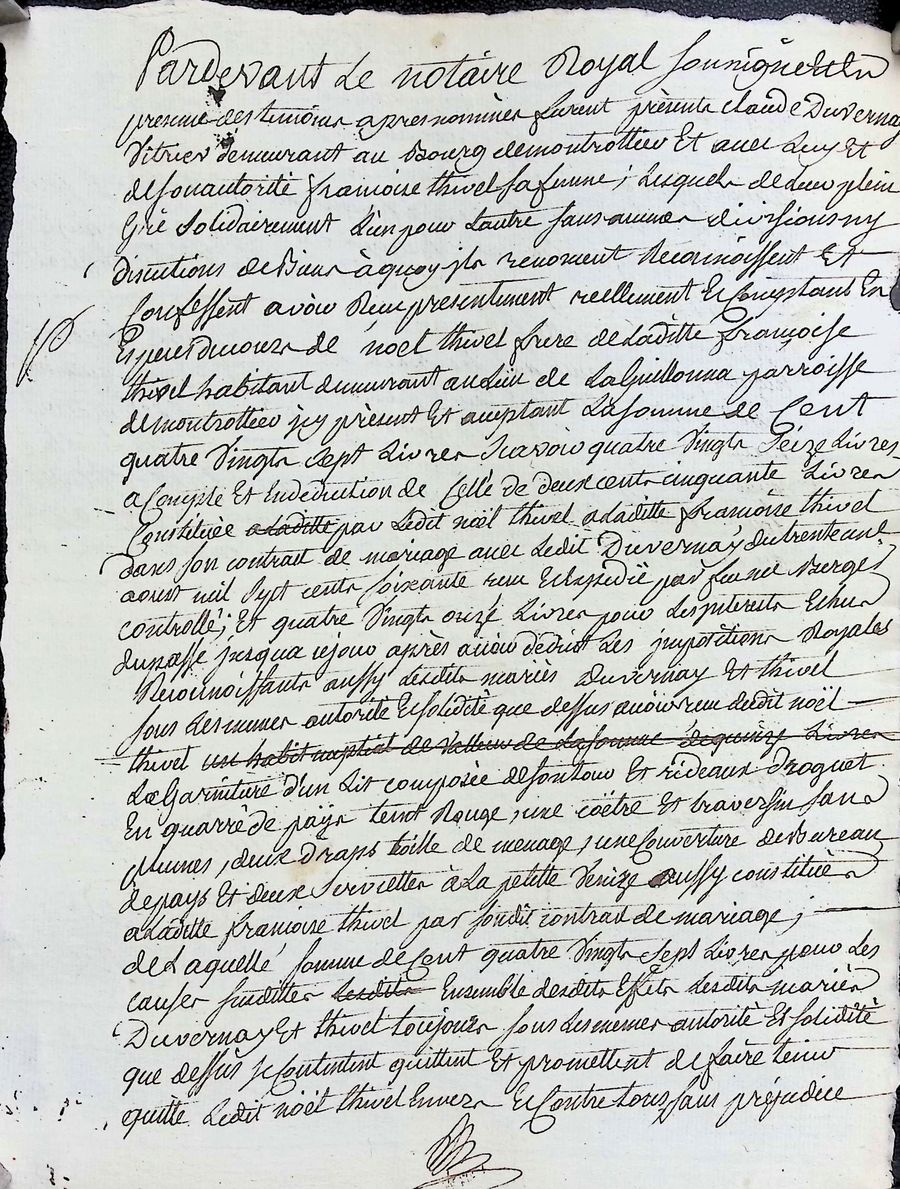 Pardevant Le notaire Royal soussigné et En
presence des temoins apres nommés furent présents claude Duvernay
Vitrier demeurant au Bourg de montrottier Et avec Luy Et
de son autorité françoise thivel sa femme ; Lesquels de Leur plein
Gré solidairement L'un pour L'autre sans aucunes divisions ny
discutions de Biens à quoy jls renoncent Reconnoissent Et
Confessent avoir Reçu presentement reellement Et Comptant En
Especes de cours de noël thivel frere de Laditte françoise
thivel habitant demeurant au Lieu de La Guillonna parroisse
de montrottier jcy présent Et acceptant La somme de Cent
quatre Vingts sept Livres scavoir quatre Vingts seize Livres
a Compte Et En deduction de Celle de deux cents cinquante Livres
Constituée a Laditte par Ledit noël thivel a Laditte françoise thivel
dans son contrat de mariage avec Ledit Duvernay du trente un
aoust mil sept cents soixante reçu Et Expedié par feu me Berger
controllé ; Et quatre Vingts onze Livres pour Les jnterets Echus
du passé jusqua ce jour après avoir deduit Les jmpositions Royales
Reconnoissants aussy Lesdits mariés Duvernay Et thivel
sous Les memes autorité Et solidité que dessus avoir reçu dudit noël
thivel un habit nuptial de Valleur de La somme de quinze Livres
La Garniture d'un Lit composée de son tour Et rideaux Droguet
En quarré de pays teint Rouge, une coëtre Et traversin sans
plumes, deux Draps toille de menage, une Couverture de Bureau
de pays Et deux serviettes à La petitte Venize aussy constitués
a Laditte françoise thivel par sondit contrat de mariage ;
de Laquelle somme de Cent quatre Vingts sept Livres pour Les
causes susdittes Lesdits Ensemble desdits Effets Lesdits mariés
Duvernay Et thivel toujours sous Les memes autorité Et solidité
que dessus se Contentent quittent Et promettent de faire tenir
quitte Ledit noël thivel Envers Et Contre tous, sans préjudice